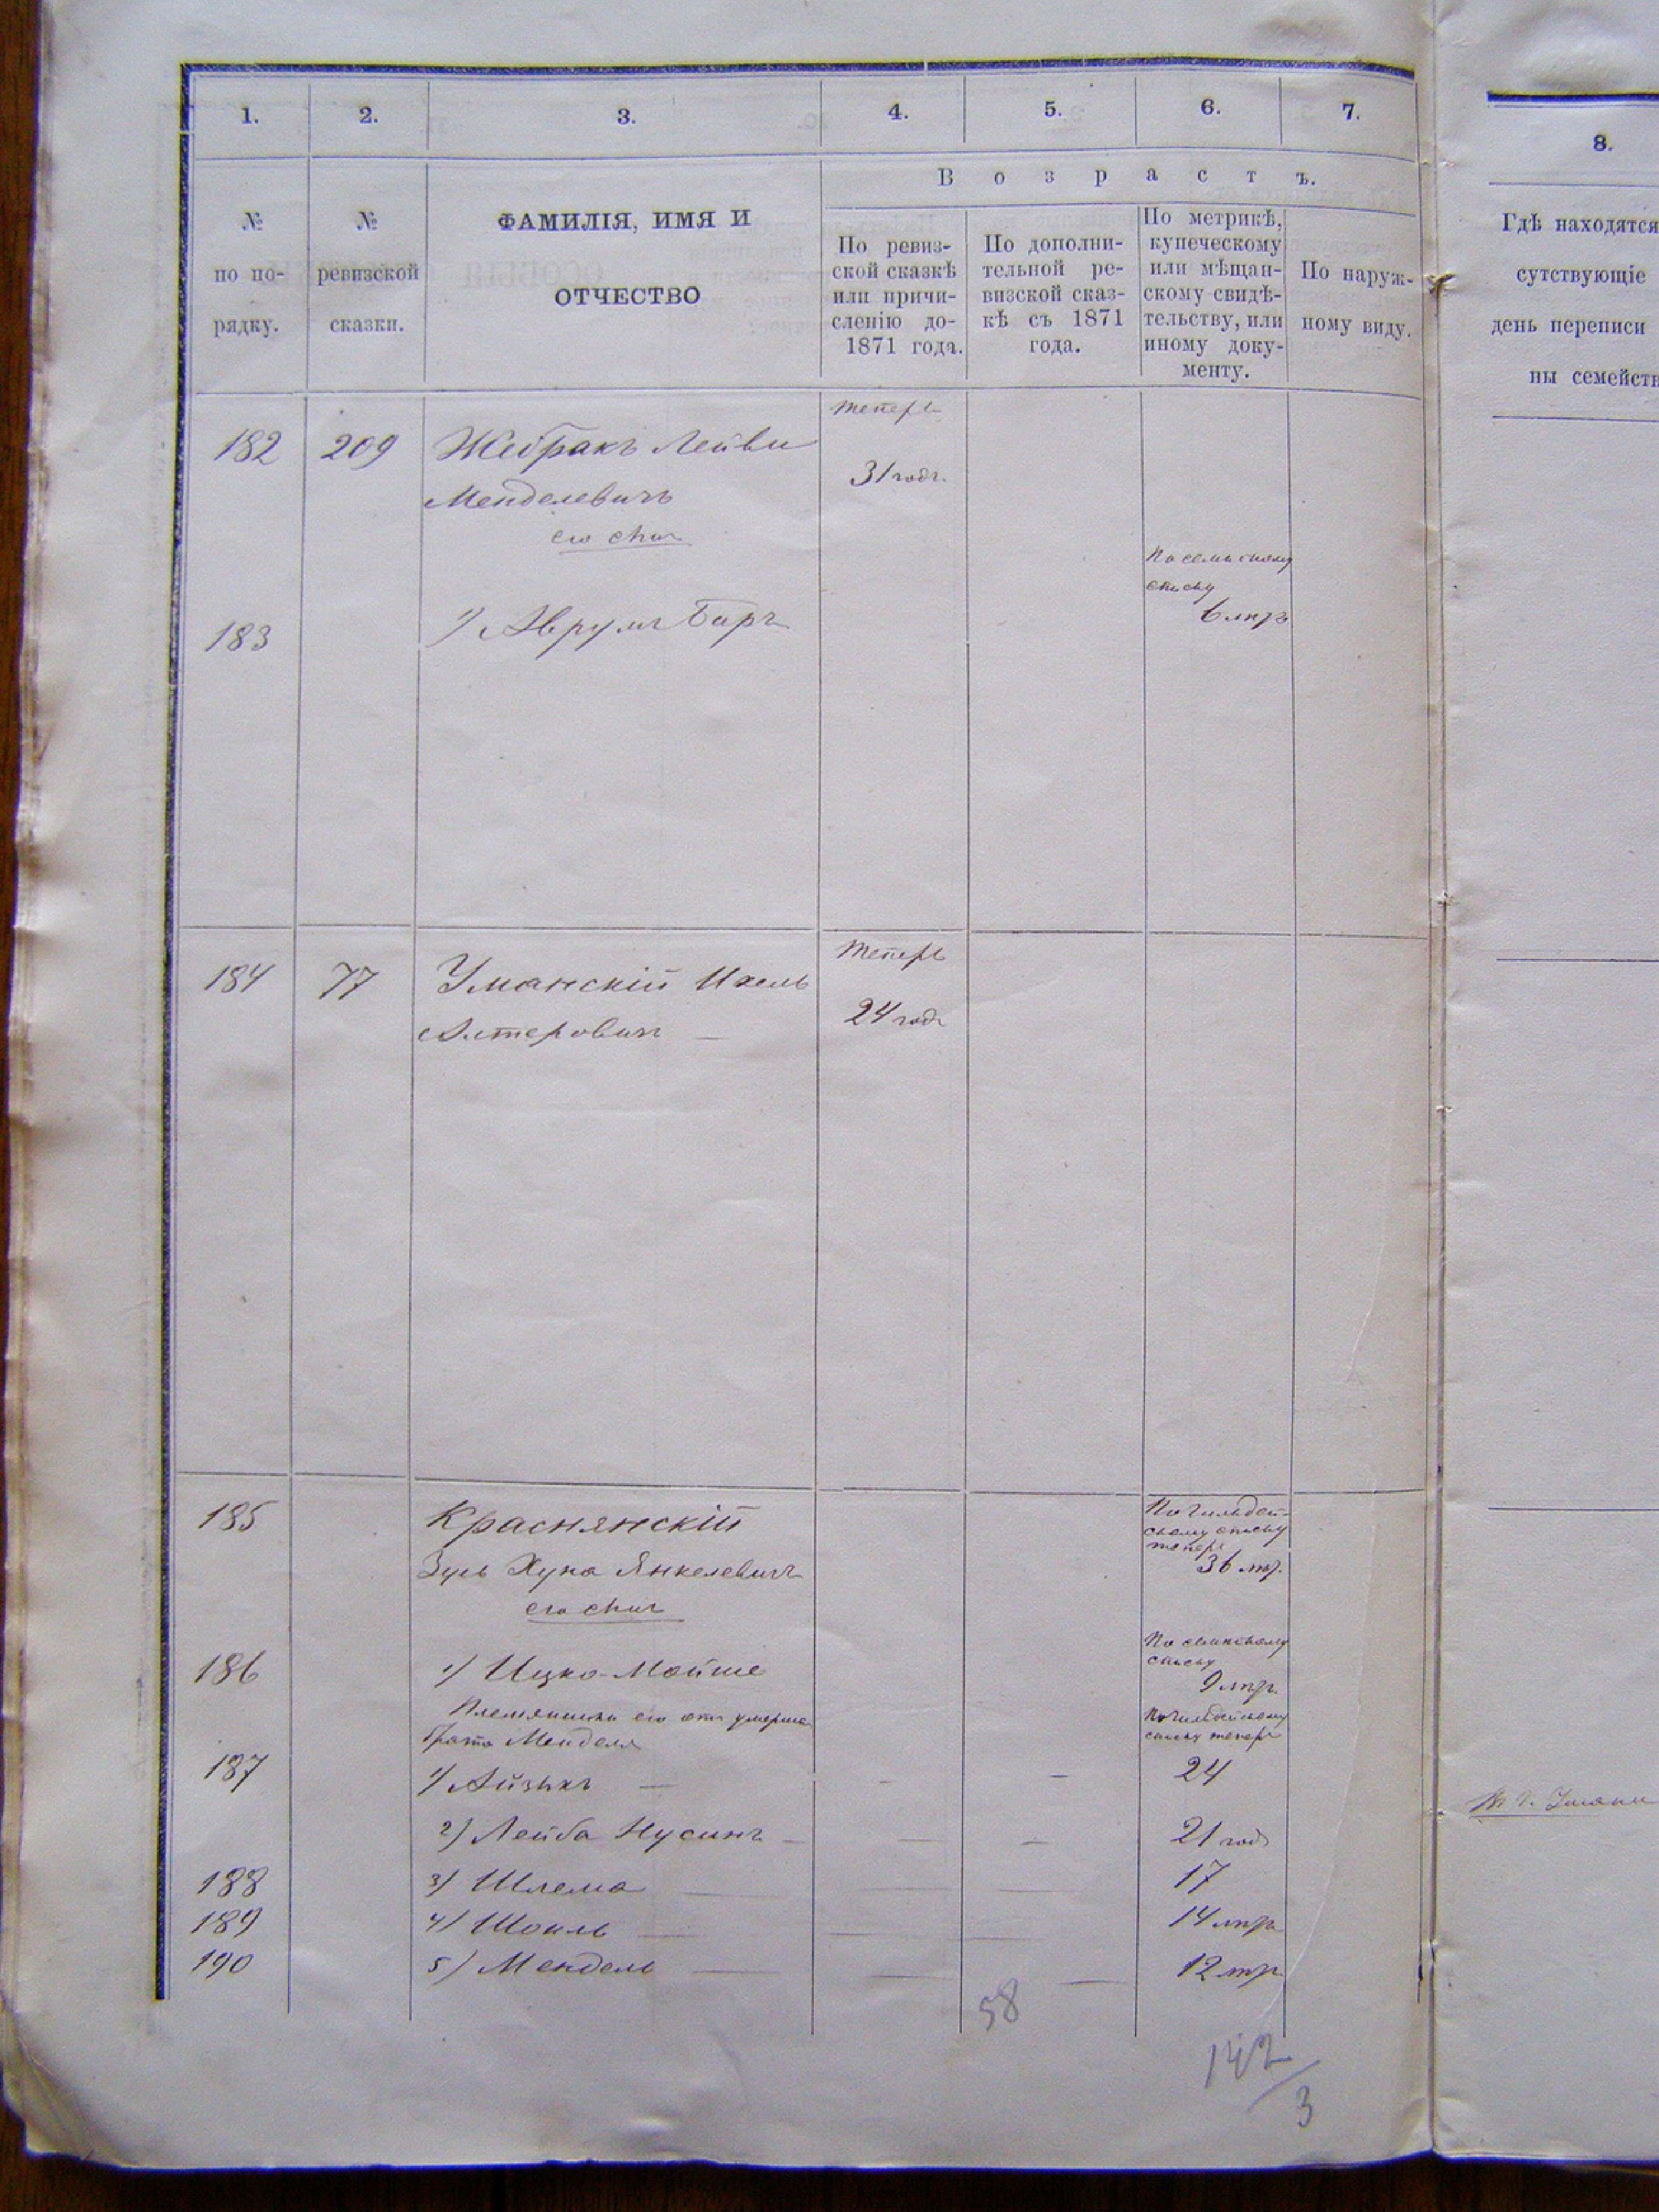 1. 2. 3. 4. 5. 6. 7.
8.
Возрастъ.
№
по по-
рядку.
№
ревизской
сказки.
ФАМИЛІЯ, ИМЯ И
ОТЧЕСТВО
По ревиз-
ской сказкѣ
или причи-
сленію до-
1871 года.
По дополни-
тельной ре-
визской сказ-
кѣ съ 1871
года.
По метрикѣ,
купеческому
или мѣщан-
скому свидѣ-
тельству, или
иному доку-
менту.
По наруж-
ному виду.
Гдѣ находятся
сутствующіе
день переписи
ны семейств
теперь
182 209 Жебракъ Лейви
31 годъ.
Менделевичъ
его сынъ
По семейному
списку
6 лѣтъ
183 1) Аврумъ Беръ
теперь
184 77 Уманскій Ихель
24 года
Алтеровичъ —
185 Краснянскій
По гильдей-
скому списку
теперь
36 лѣт.
Зусь Хуна Янкелевичъ
его сынъ
По семейному
списку
186 1) Ицко-Мойше
9 лѣтъ
Племянники его отъ умерше
брата Менделя
По гильдейскому
списку теперь
187 1) Айзыкъ — — — 24
2) Лейба Нусинъ — — — 21 годъ
188 3) Шлема — — — 17
189 4) Шоиль — — — 14 лѣтъ
190 5) Мендель — — — 12 лѣтъ
58
142
3